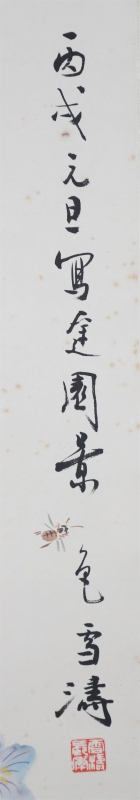 丙戌元旦寫途園景色雪濤